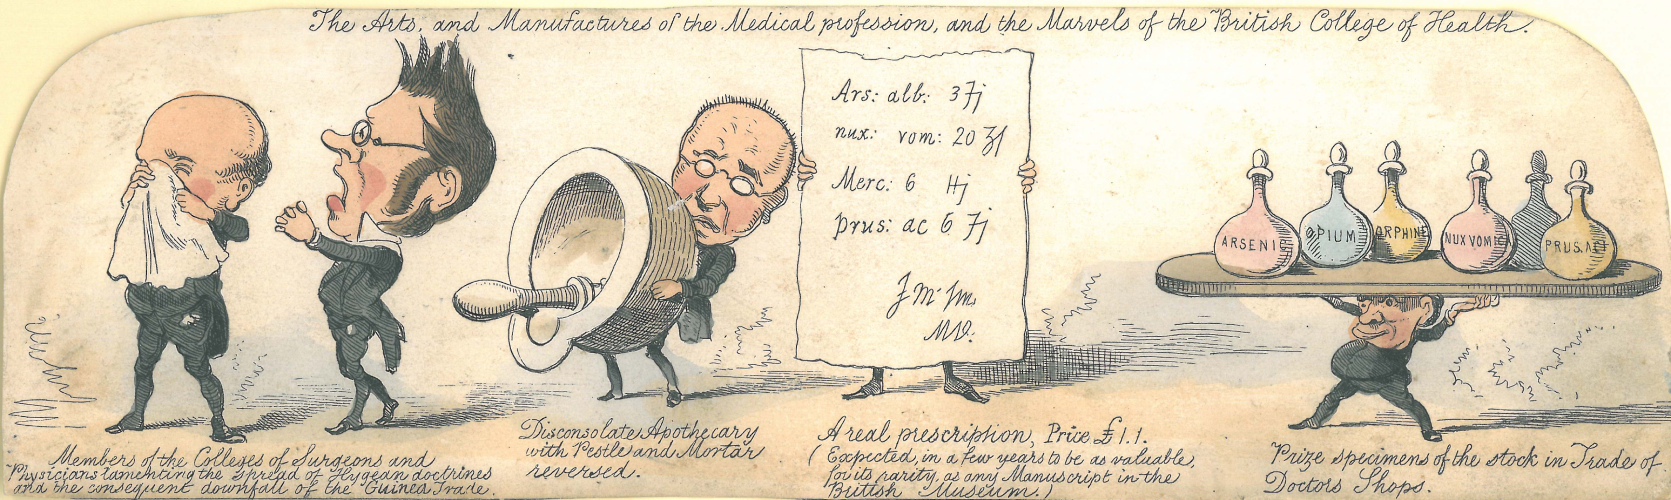 The Arts, and Manufactures of the Medical profession, and the Marvels of the British College of Health.
Ars: alb: 3 ʒj
nux: vom: 20 ʒſ
Merc: 6 Hj
prus: ac 6 ʒj
MD.
ARSENI
OPIUM
ORPHINE
NUX VOMIC
PRUS.A
Members of the Colleges of Surgeons and
Physicians lamenting the spread of Hygean doctrines
and the consequent downfall of the Guinea Trade.
Disconsolate Apothecary
with Pestle and Mortar
reversed.
A real prescription, Price £1.1.
(Expected, in a few years to be as valuable,
for its rarity, as any Manuscript in the
British Museum.)
Prize specimens of the stock in Trade of
Doctors Shops.